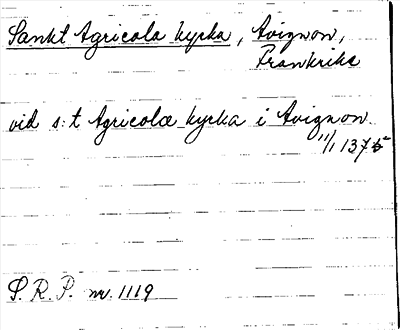 Sankt Agricola kyrka, Avignon,
Frankrike
vid s:t Agricolæ kyrka i Avignon.
11/1 1375
S. R. P. nr. 1119